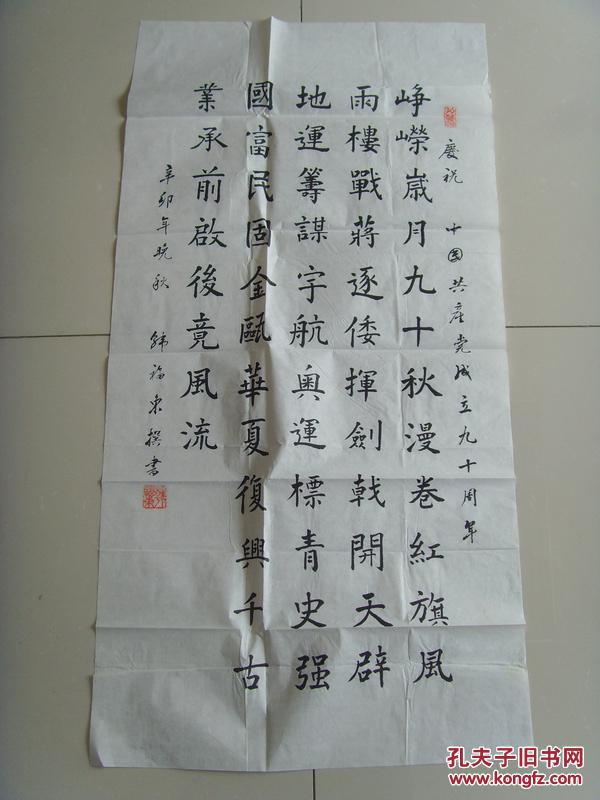 慶祝 中国共產党成立九十周年
崢嶸歲月九十秋漫卷紅旗風
雨樓戰蔣逐倭揮劍戟開天辟
地運籌謀宇航奧運標青史强
國富民固金甌華夏復興千古
業承前啟後竟風流
辛卯年晚秋 韩福東撰書
孔夫子旧书网
www.kongfz.com